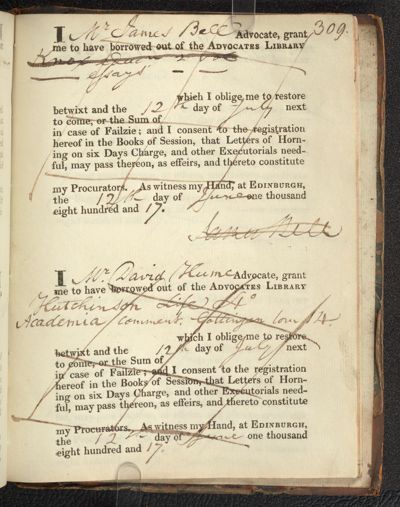 309.
I Mr James Bell Advocate, grant
me to have borrowed out of the ADVOCATES LIBRARY
Knox
essays 2 vol
which I oblige me to restore
betwixt and the 12th day of July next
to come, or the Sum of
in case of Failzie; and I consent to the registration
hereof in the Books of Session, that Letters of Horn-
ing on six Days Charge, and other Executorials need-
ful, may pass thereon, as effeirs, and thereto constitute
my Procurators. As witness my Hand, at EDINBURGH,
the 12th day of June one thousand
eight hundred and 17.
James Bell
I Mr David Hume Advocate, grant
me to have borrowed out of the ADVOCATES LIBRARY
Hutchinson Life 4o
Academia Comment. Gottingen tom 14.
which I oblige me to restore
betwixt and the 12th day of July next
to come, or the Sum of
in case of Failzie; and I consent to the registration
hereof in the Books of Session, that Letters of Horn-
ing on six Days Charge, and other Executorials need-
ful, may pass thereon, as effeirs, and thereto constitute
my Procurators. As witness my Hand, at EDINBURGH,
the 12th day of June one thousand
eight hundred and 17.